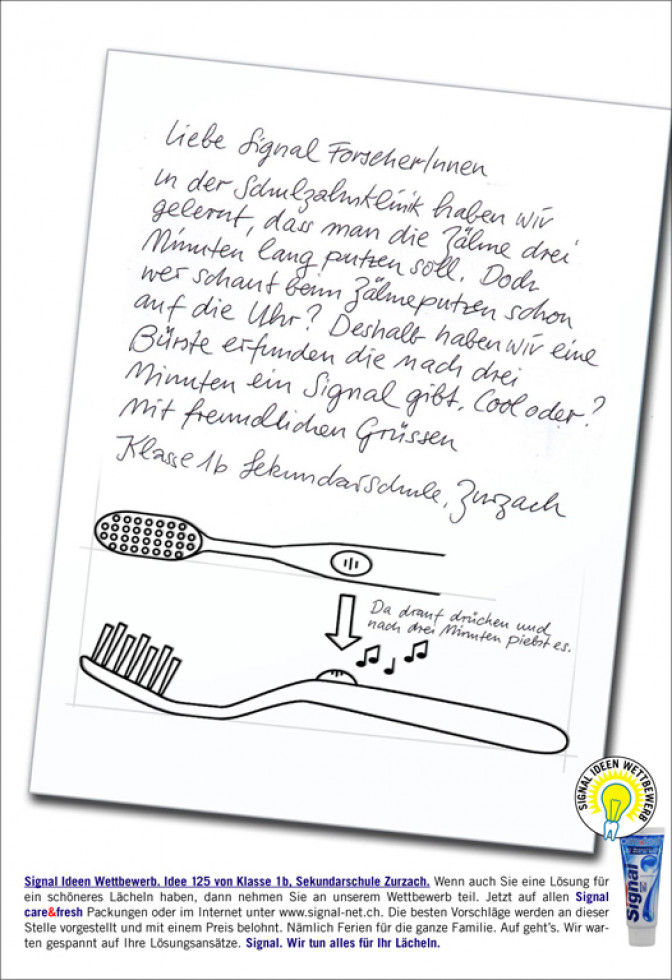 Liebe Signal ForscherInnen
in der Schulzahnklinik haben wir
gelernt, dass man die Zähne drei
Minuten lang putzen soll. Doch
wer schaut beim Zähneputzen schon
auf die Uhr? Deshalb haben wir eine
Bürste erfunden die nach drei
Minuten ein Signal gibt. Cool oder?
Mit freundlichen Grüssen
Klasse 1b Sekundarschule, Zurzach
Da drauf drücken und
nach drei Minuten piepst es.
SIGNAL IDEEN WETTBEWERB
Signal
Signal Ideen Wettbewerb. Idee 125 von Klasse 1b, Sekundarschule Zurzach. Wenn auch Sie eine Lösung für
ein schöneres Lächeln haben, dann nehmen Sie an unserem Wettbewerb teil. Jetzt auf allen Signal
care&fresh Packungen oder im Internet unter www.signal-net.ch. Die besten Vorschläge werden an dieser
Stelle vorgestellt und mit einem Preis belohnt. Nämlich Ferien für die ganze Familie. Auf geht's. Wir war-
ten gespannt auf Ihre Lösungsansätze. Signal. Wir tun alles für Ihr Lächeln.